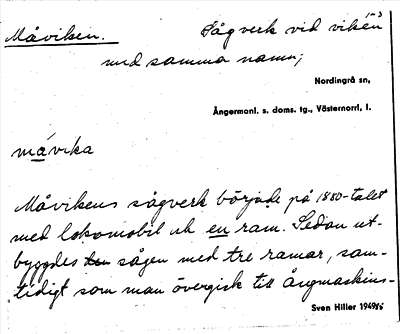 1-3
Måviken. Sågverk vid viken
med samma namn;
Nordingrå sn,
Ångermanl. s. doms. tg., Västernorrl. l.
måvika
Måvikens sågverk började på 1880-talet
med lokomobil och en ram. Sedan ut-
byggdes sågen med tre ramar, sam-
tidigt som man övergick till ångmaskins-
Sven Hiller 1949